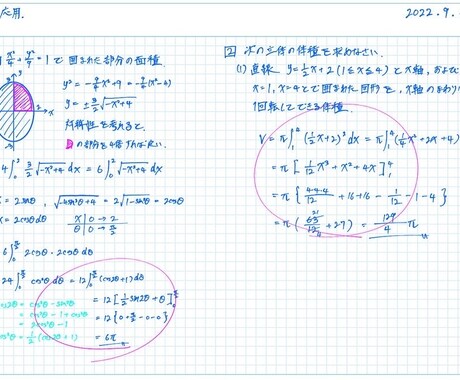 応用.
2022. 9.
x²/4 + y²/9 = 1 で 囲まれた部分の面積.
y² = -9/4 x² + 9 = -9/4 (x²-4)
y = ± 3/2 √(-x²+4)
対称性を考えると、
の部分を4倍すればよい.
4∫₀² 3/2 √(-x²+4) dx = 6∫₀² √(-x²+4) dx
x = 2sinθ , √(-4sin²θ+4) = 2√(1-sin²θ) = 2cosθ
x = 2cosθdθ
x | 0 → 2
θ | 0 → π/2
6∫₀^(π/2) 2cosθ・2cosθ dθ
24∫₀^(π/2) cos²θ dθ = 12∫₀^(π/2) (cos2θ+1) dθ
= 12 [ 1/2 sin2θ + θ ]₀^(π/2)
= 12 { 0 + π/2 - 0 - 0 }
= 6π
cos2θ = cos²θ - sin²θ
= cos²θ - 1 + cos²θ
= 2cos²θ - 1
cos²θ = 1/2 (cos2θ + 1)
2 次の立体の体積を求めなさい.
(1) 直線 y = 1/2 x + 2 (1 ≦ x ≦ 4) と x軸, および
x = 1, x = 4 とで囲まれた図形を, x軸のまわりに
1回転してできる体積.
V = π∫₁⁴ (1/2 x + 2)² dx = π∫₁⁴ (1/4 x² + 2x + 4)
= π [ 1/12 x³ + x² + 4x ]₁⁴
= π { 4・4・4/12 + 16 + 16 - 1/12 - 1 - 4 }
= π ( 63/12 + 27 ) = 129/4 π